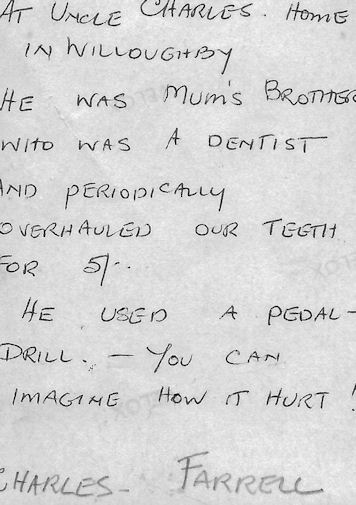 AT UNCLE CHARLES. HOME
IN WILLOUGHBY
HE WAS MUM'S BROTHER
WHO WAS A DENTIST
AND PERIODICALLY
OVERHAULED OUR TEETH
FOR 5/-.
HE USED A PEDAL-
DRILL. — YOU CAN
IMAGINE HOW IT HURT!
CHARLES- FARRELL